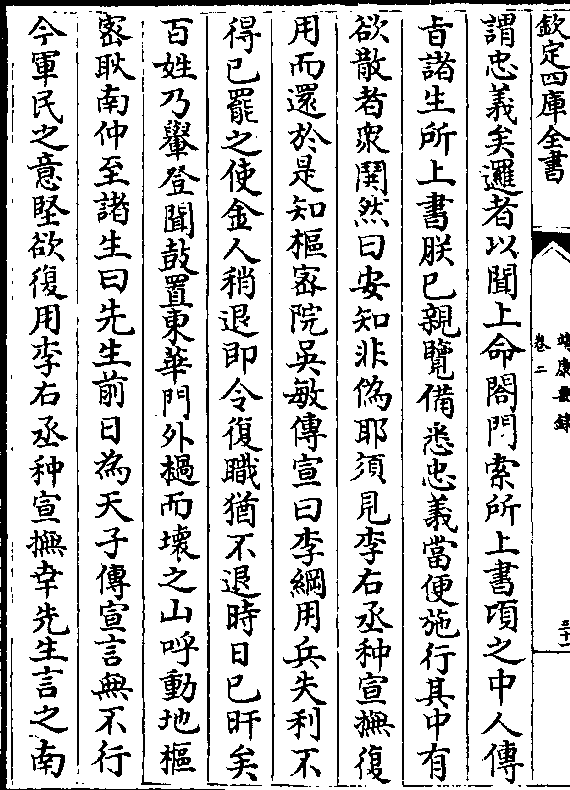 欽定四庫全書
靖康要錄
卷二
三十一
謂忠義矣邏者以聞上命閤門索所上書頃之中人傳
旨諸生所上書朕已親覽備悉忠義當便施行其中有
欲散者衆鬨然曰安知非偽耶須見李右丞种宣撫復
用而還於是知樞宻院吳敏傳宣曰李綱用兵失利不
得已罷之使金人稍退即令復職猶不退時日已旰矣
百姓乃轝登聞鼓置東華門外撾而壞之山呼動地樞
宻耿南仲至諸生曰先生前日為天子傳宣言無不行
今軍民之意堅欲復用李右丞种宣撫幸先生言之南